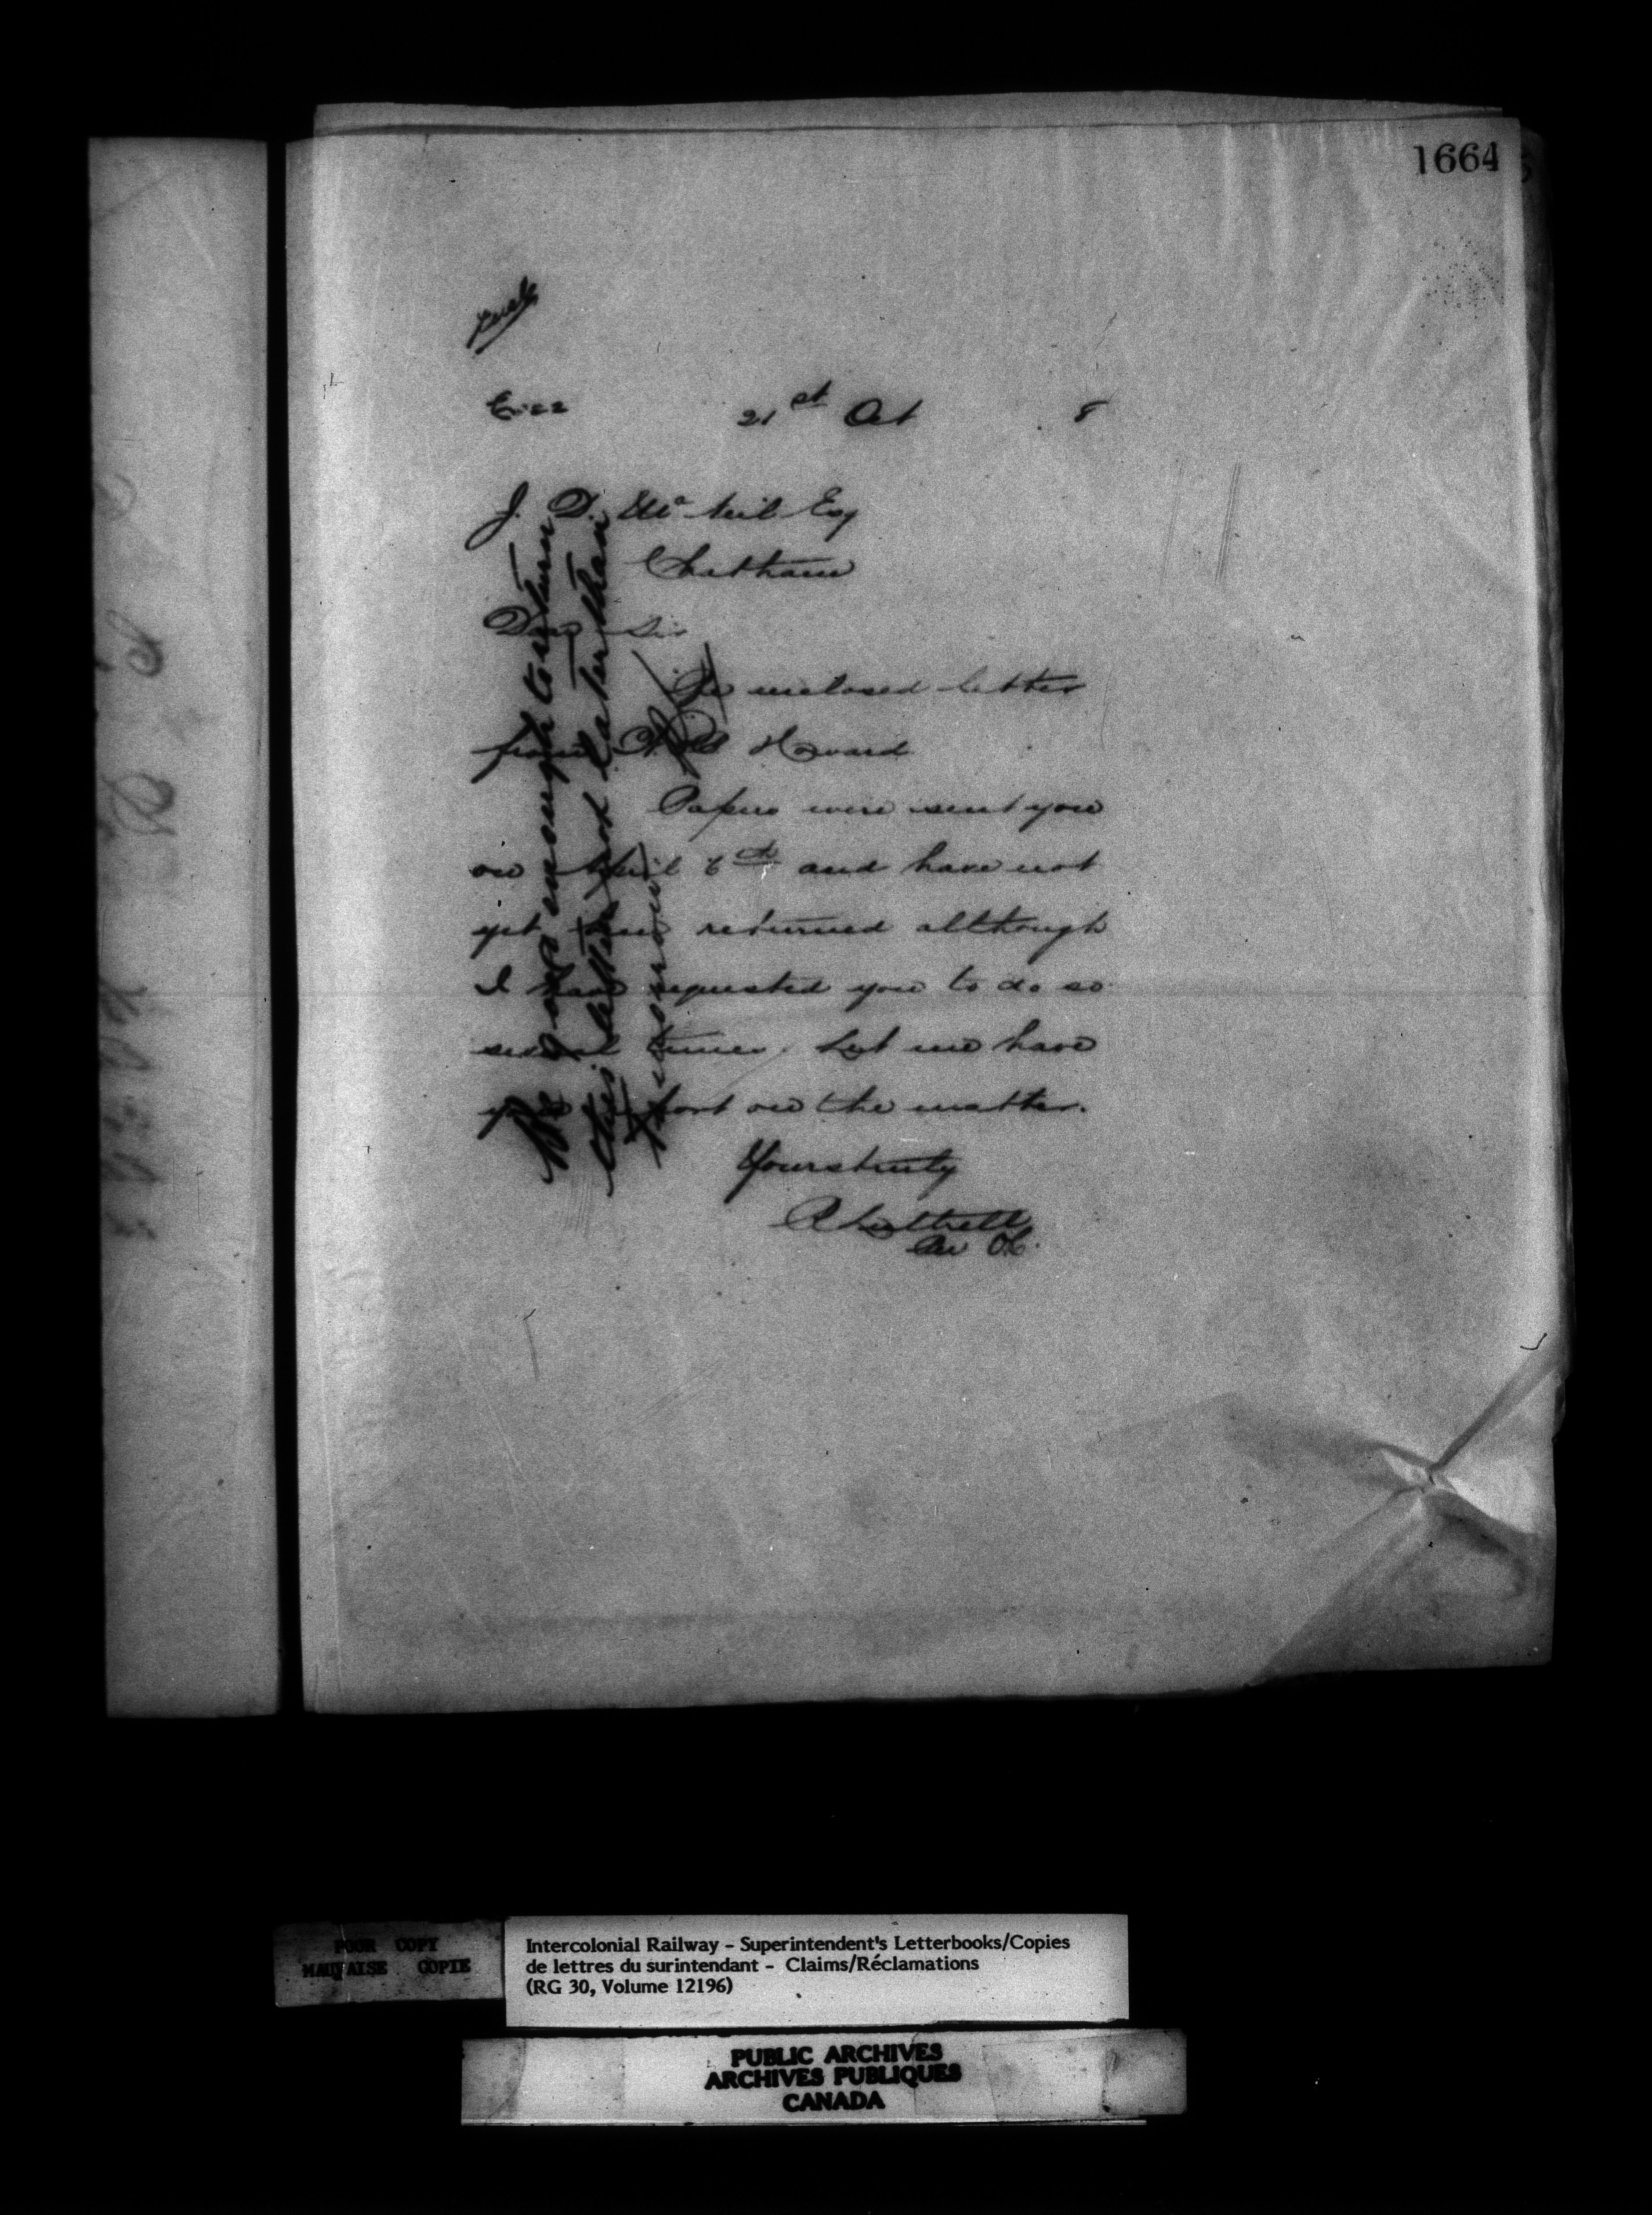 1664
21st Oct 8
J. D. McNeil Esq
Chatham
Dear Sir
Re enclosed letter
from Howard
Papers were sent you
on April 6th and have not
yet been returned although
I have requested you to do so
several times. Let me have
your report on the matter.
Yours truly
A Luttrell
Per
Be good enough to return
this letter not later than
tomorrow
POOR COPY
MAUVAISE COPIE
Intercolonial Railway – Superintendent's Letterbooks/Copies
de lettres du surintendant – Claims/Réclamations
(RG 30, Volume 12196)
PUBLIC ARCHIVES
ARCHIVES PUBLIQUES
CANADA